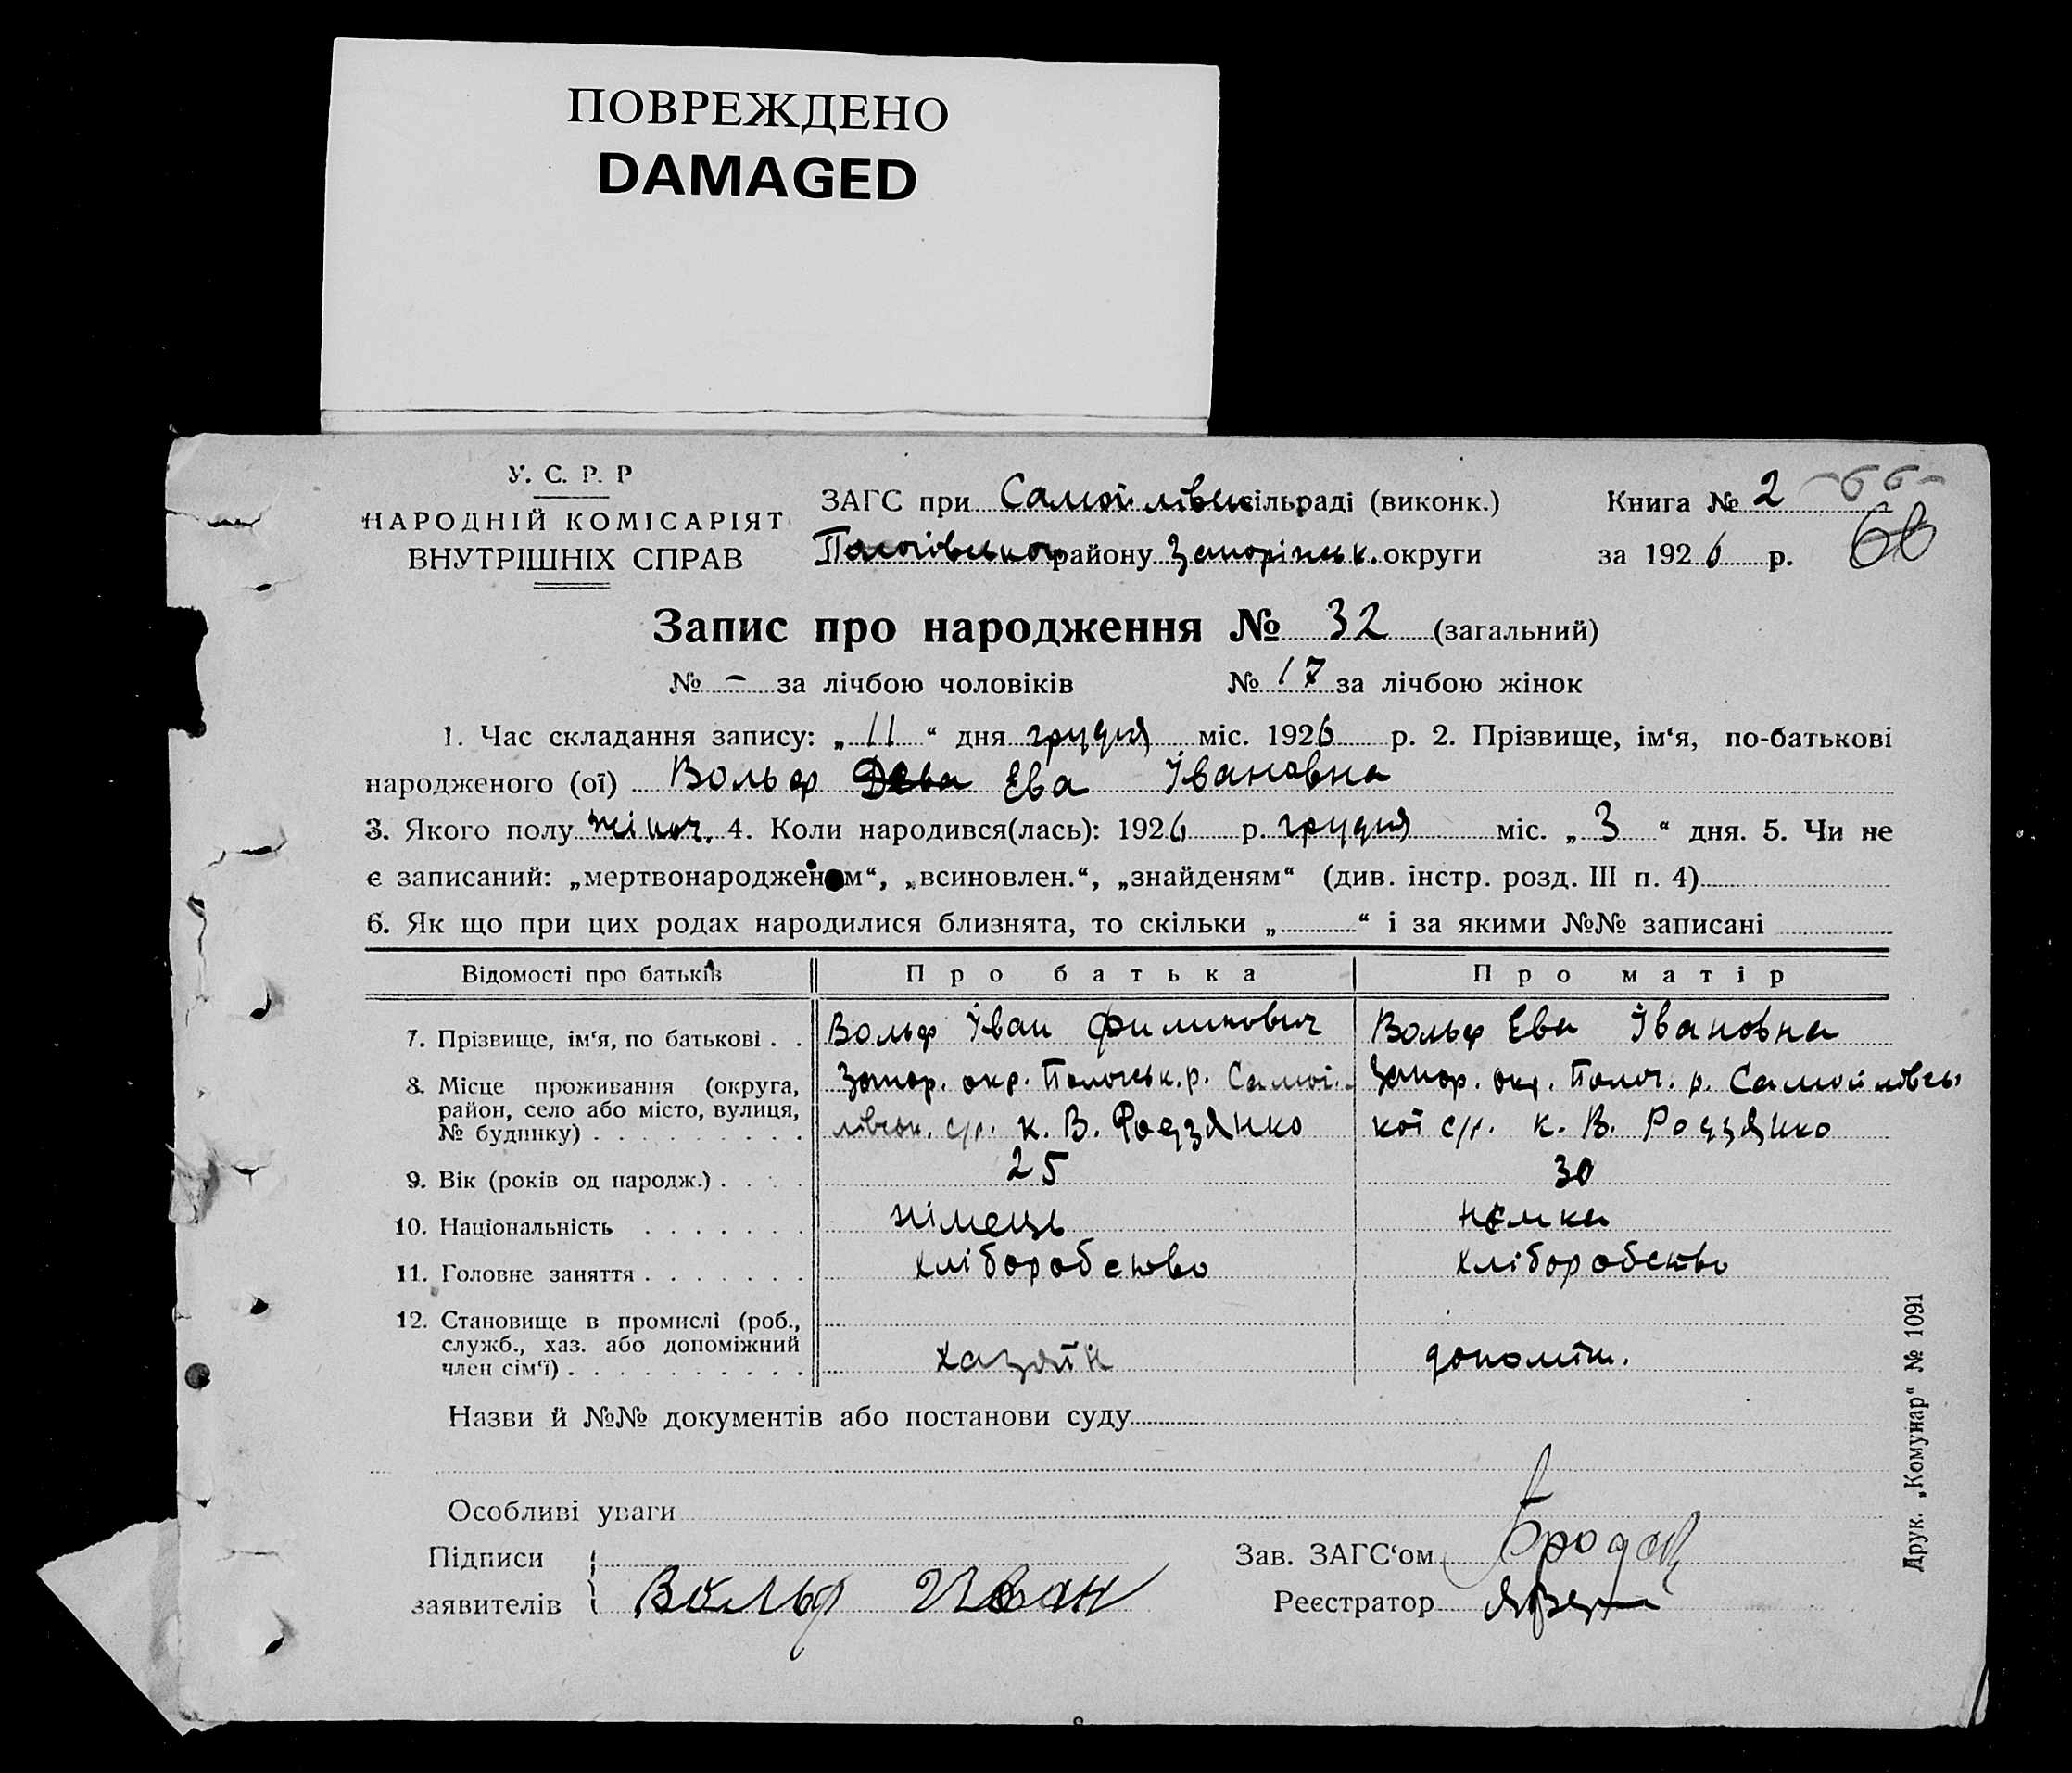 ПОВРЕЖДЕНО
DAMAGED
У. С. Р. Р
НАРОДНІЙ КОМІСАРІЯТ
ВНУТРІШНІХ СПРАВ
ЗАГС при Самойлівск сільраді (виконк.)
Пологівського району Запоріжськ. округи
Книга № 2
-66-
за 1926 р.
66
Запис про народження № 32 (загальний)
№ - за лічбою чоловіків № 17 за лічбою жінок
1. Час складання запису: „ 11 “ дня грудня міс. 1926 р. 2. Прізвище, ім‘я, по-батькові
народженого (ої) Вольф Ева Івановна
3. Якого полу жіноч. 4. Коли народився(лась): 1926 р. грудня міс. „ 3 “ дня. 5. Чи не
є записаний: „мертвонародженом“, „всиновлен.“, „знайденям“ (див. інстр. розд. III п. 4)
6. Як що при цих родах народилися близнята, то скільки „ “ і за якими №№ записані
Відомості про батьків Про батька Про матір
7. Прізвище, ім‘я, по батькові . . Вольф Іван Филипович Вольф Ева Івановна
8. Місце проживання (округа, район, село або місто, вулиця, № будинку) . . . . . . . . .
Запор. окр. Пологськ. р. Самой-
лівськ. с/р. к. В. Родзянко
Запор. окр. Полог. р. Самойлівсь
кої с/р. к. В. Родзянко
9. Вік (років од народж.) . . . . 25 30
10. Національність . . . . . . . німець немка
11. Головне заняття . . . . . . . хліборобство хліборобство
12. Становище в промислі (роб.,
служб., хаз. або допоміжний
член сім‘ї) . . . . . . . . . . хазяїн допоміж.
Назви й №№ документів або постанови суду
Особливі уваги
Підписи
заявителів Вольф Иван
Зав. ЗАГС‘ом
Реєстратор
Друк. „Комунар“ № 1091